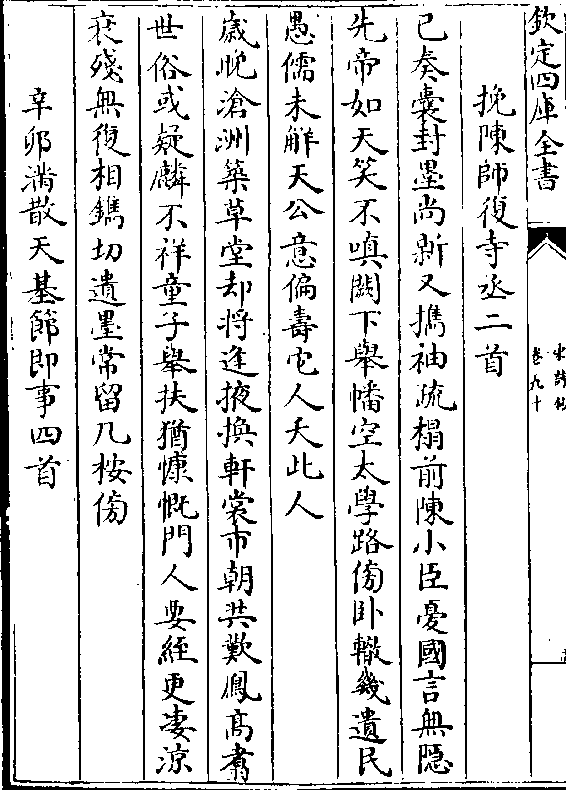 欽定四庫全書
宋詩鈔
卷九十
挽陳師復寺丞二首
已奏囊封墨尚新又攜袖疏榻前陳小臣憂國言無隱
先帝如天笑不嗔闕下舉幡空太學路傍卧轍幾遺民
愚儒未解天公意偏壽它人夭此人
歲晚滄洲築草堂却將逢掖換軒裳市朝共歎鳳髙翥
世俗或疑麟不祥童子舉扶猶慷慨門人要絰更凄涼
衰殘無復相鐫切遺墨常留几桉傍
辛卯滿散天基節即事四首